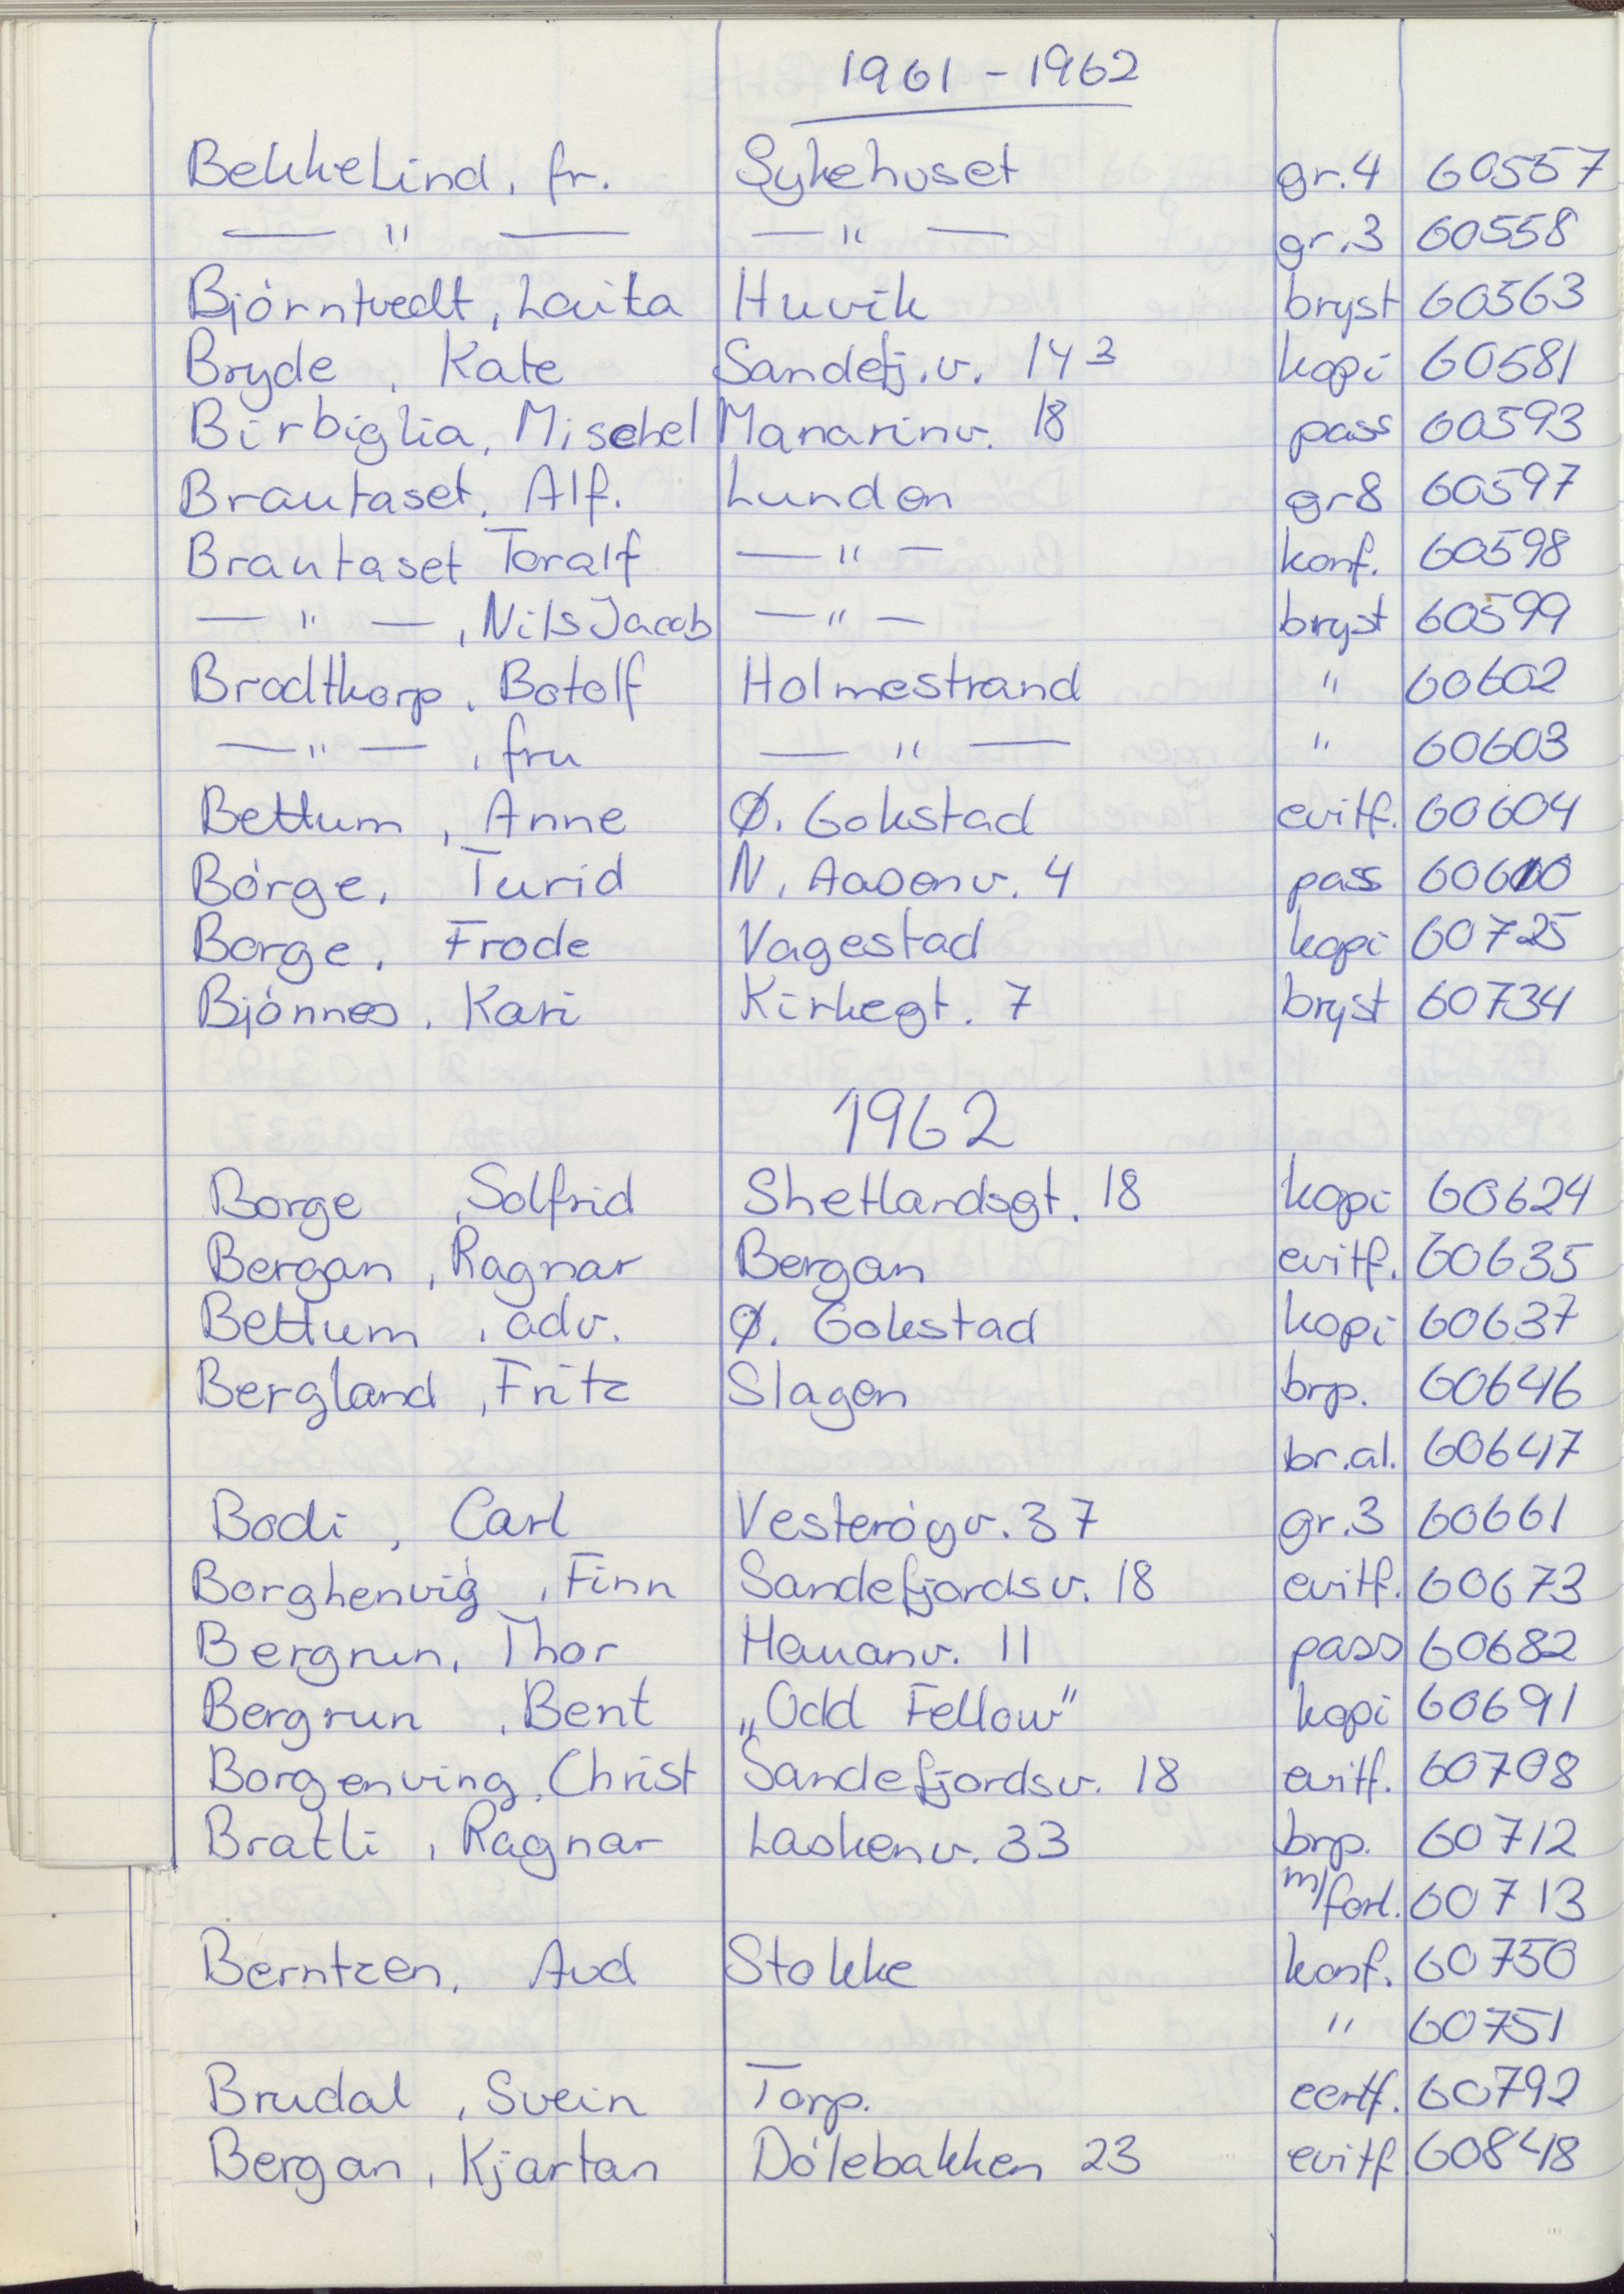 1961 - 1962
Bekkelind, fr. Sykehuset gr.4 60557
— " — — " — gr.3 60558
Bjórntvedt, Laita Huvik bryst 60563
Bryde, Kate Sandefj.v. 143 kopi 60581
Birbiglia, Mischel Mananinv. 18 pass 60593
Brautaset, Alf. Lunden gr8 60597
Brautaset Toralf — " — konf. 60598
— " —, Nils Jacob — " — bryst 60599
Brodtkorp, Botolf Holmestrand " 60602
— " —, fru — " — " 60603
Bettum, Anne Ø. Gokstad evitf. 60604
Bórge, Turid N. Aasenv. 4 pass 60610
Borge, Frode Vagestad kopi 60725
Bjónnes, Kari Kirkegt. 7 bryst 60734
1962
Borge, Solfrid Shetlandsgt. 18 kopi 60624
Bergan, Ragnar Bergan evitf. 60635
Bettum, adv. Ø. Gokstad kopi 60637
Bergland, Fritz Slagen brp. 60646
br.al. 60647
Bodi, Carl Vesterógv. 37 gr.3 60661
Borghenvig, Finn Sandefjordsv. 18 evitf. 60673
Bergrun, Thor Hauanv. 11 pass 60682
Bergrun, Bent „Odd Fellow" kopi 60691
Borgenving, Christ Sandefjordsv. 18 evitf. 60708
Bratli, Ragnar Laskenv. 33 brp. 60712
m/forl. 60713
Berntzen, Aud Stokke konf. 60750
" 60751
Brudal, Svein Torp. eertf. 60792
Bergan, Kjartan Dólebakken 23 evitf 60848